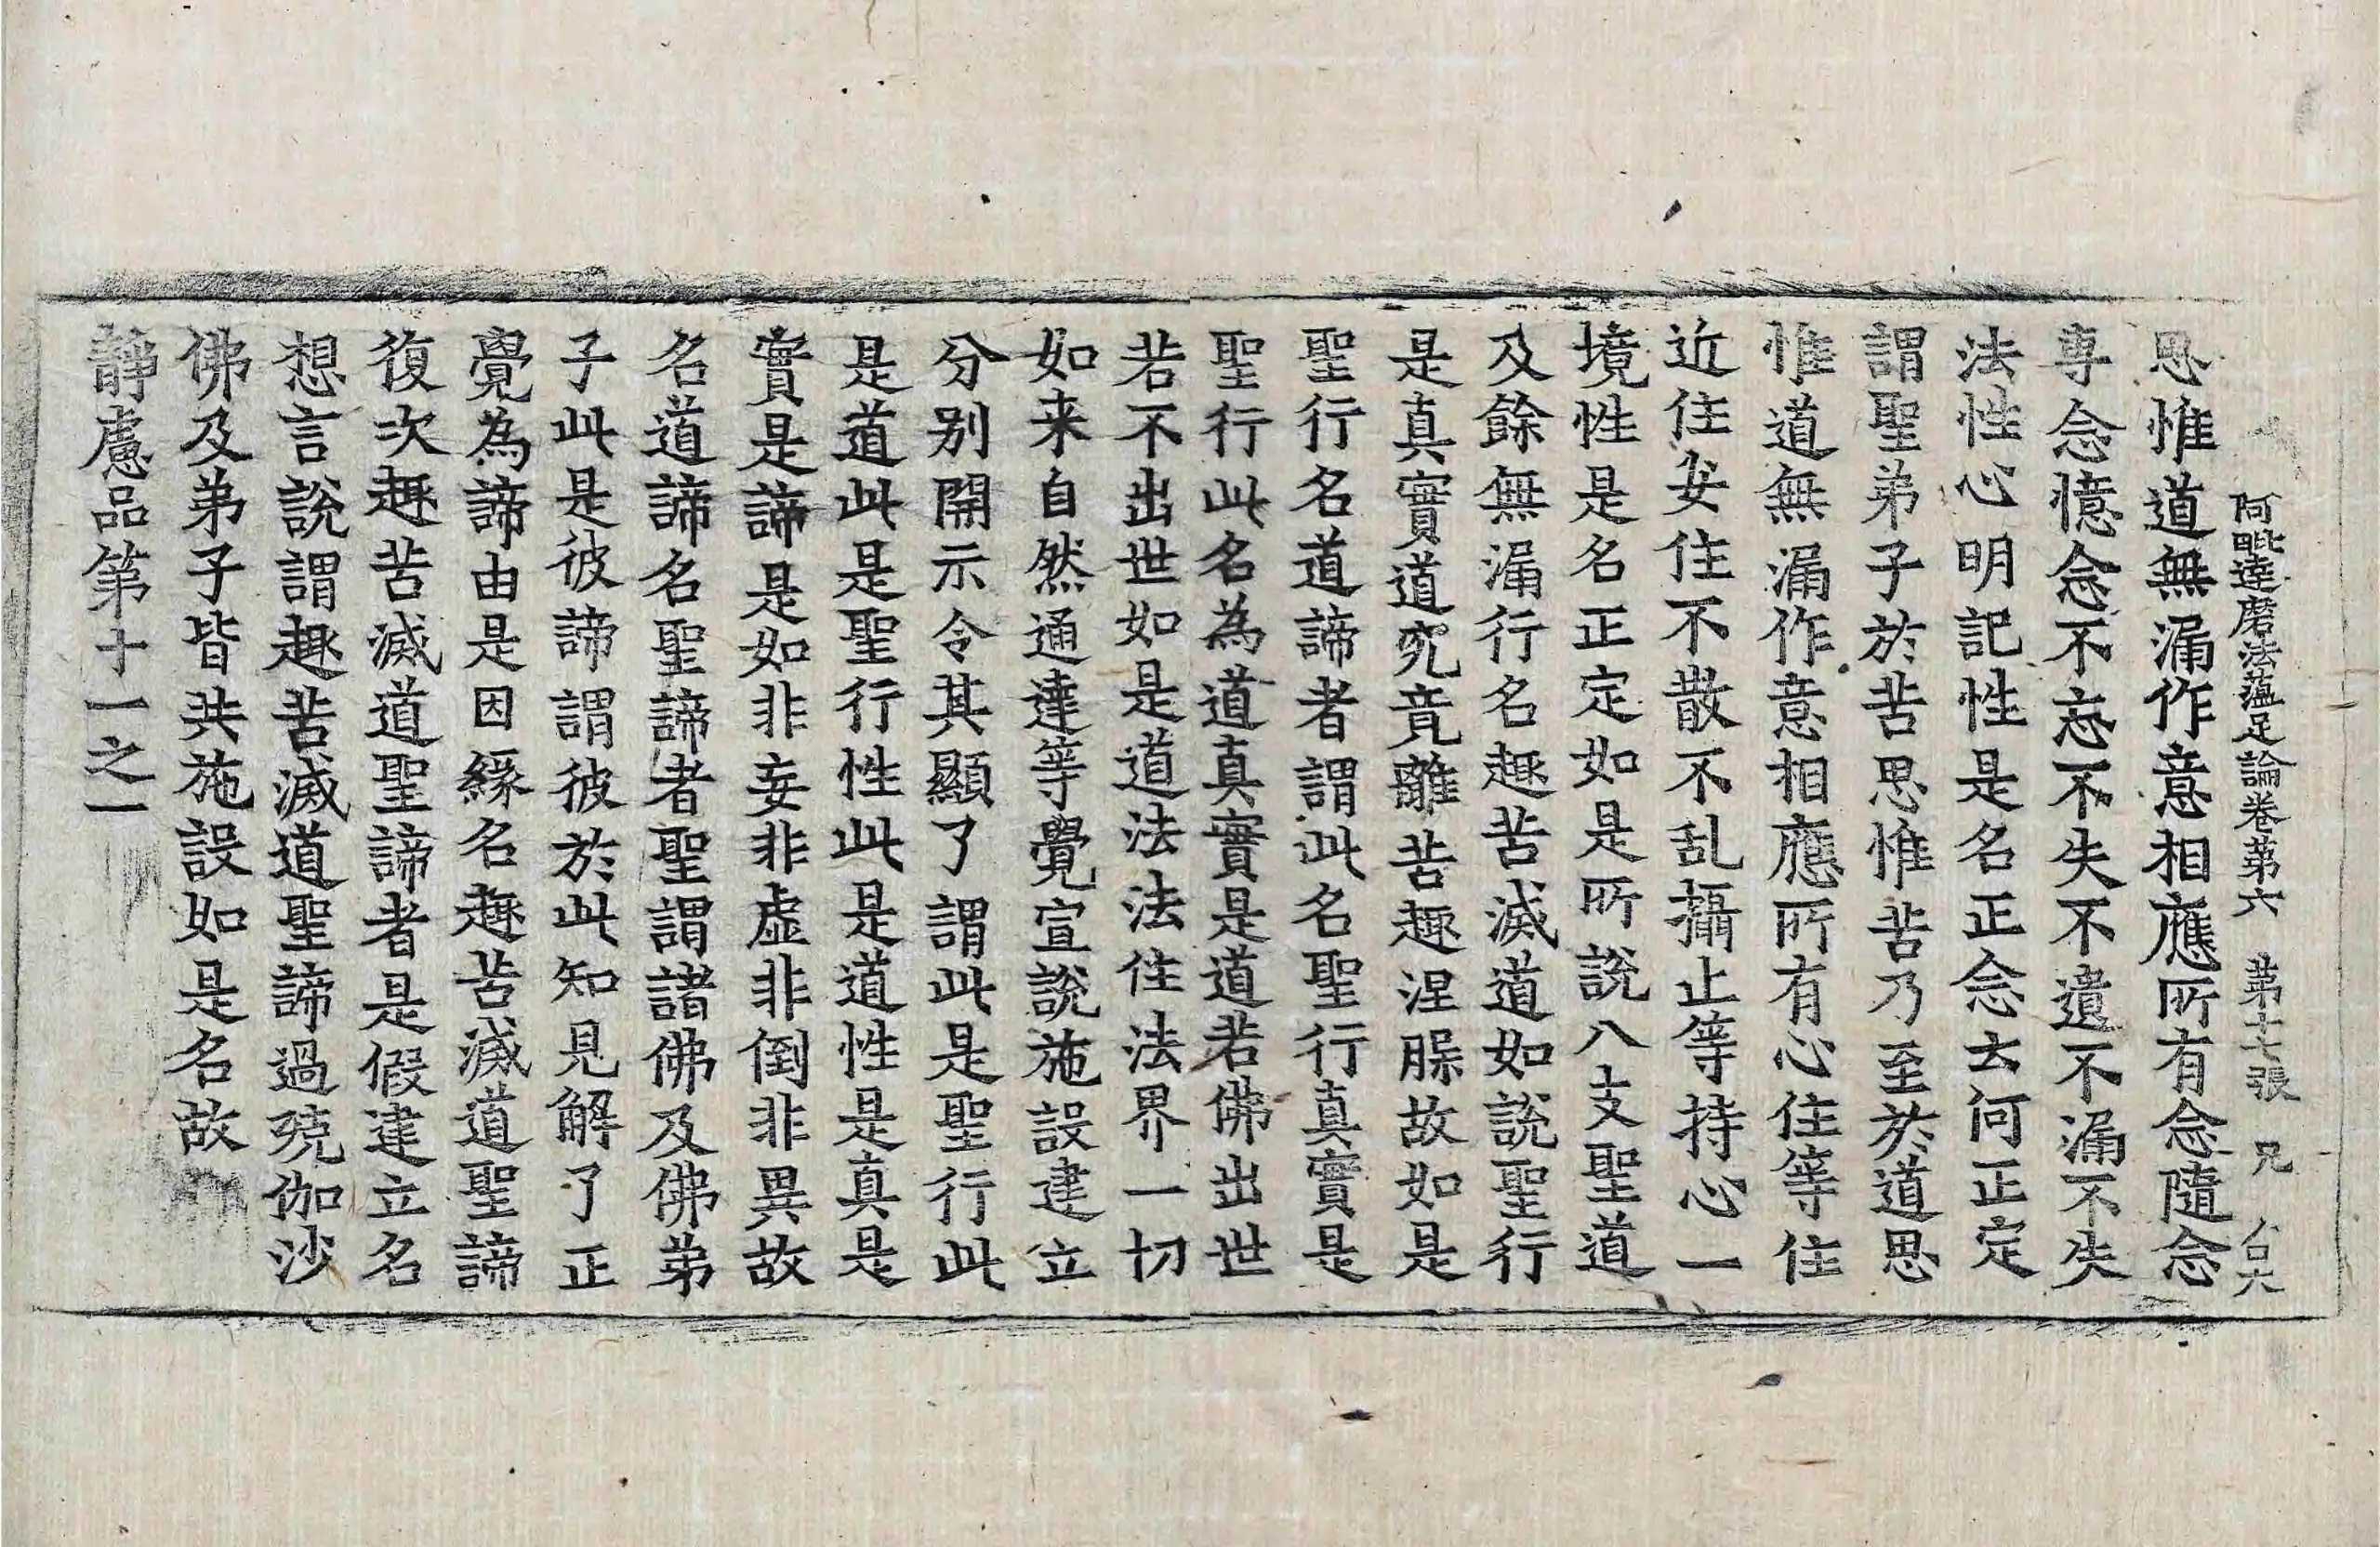 阿毗達磨法蘊足論卷第六 第十七張 兄
思惟道無漏作意相應所有念隨念
専念憶念不忘不失不遺不漏不失
法性心明記性是名正念去何正定
謂聖弟子於苦思惟苦乃至於道思
惟道無漏作意相應所有心住等住
近住安住不散不乱攝止等持心一
境性是名正定如是所說八支聖道
及餘無漏行名趣苦滅道如說聖行
是真實道究竟離苦趣涅槃故如是
聖行名道諦者謂此名聖行真實是
聖行此名為道真實是道若佛出世
若不出世如是道法法住法界一切
如来自然通達等覺宣說施設建立
分別開示令其顯了謂此是聖行此
是道此是聖行性此是道性是真是
實是諦是如非妄非虛非倒非異故
名道諦名聖諦者聖謂諸佛及佛弟
子此是彼諦謂彼於此知見解了正
覺為諦由是因緣名趣苦滅道聖諦
復次趣苦滅道聖諦者是假建立名
想言說謂趣苦滅道聖諦過殑伽沙
佛及弟子皆共施設如是名故
靜慮品第十一之一